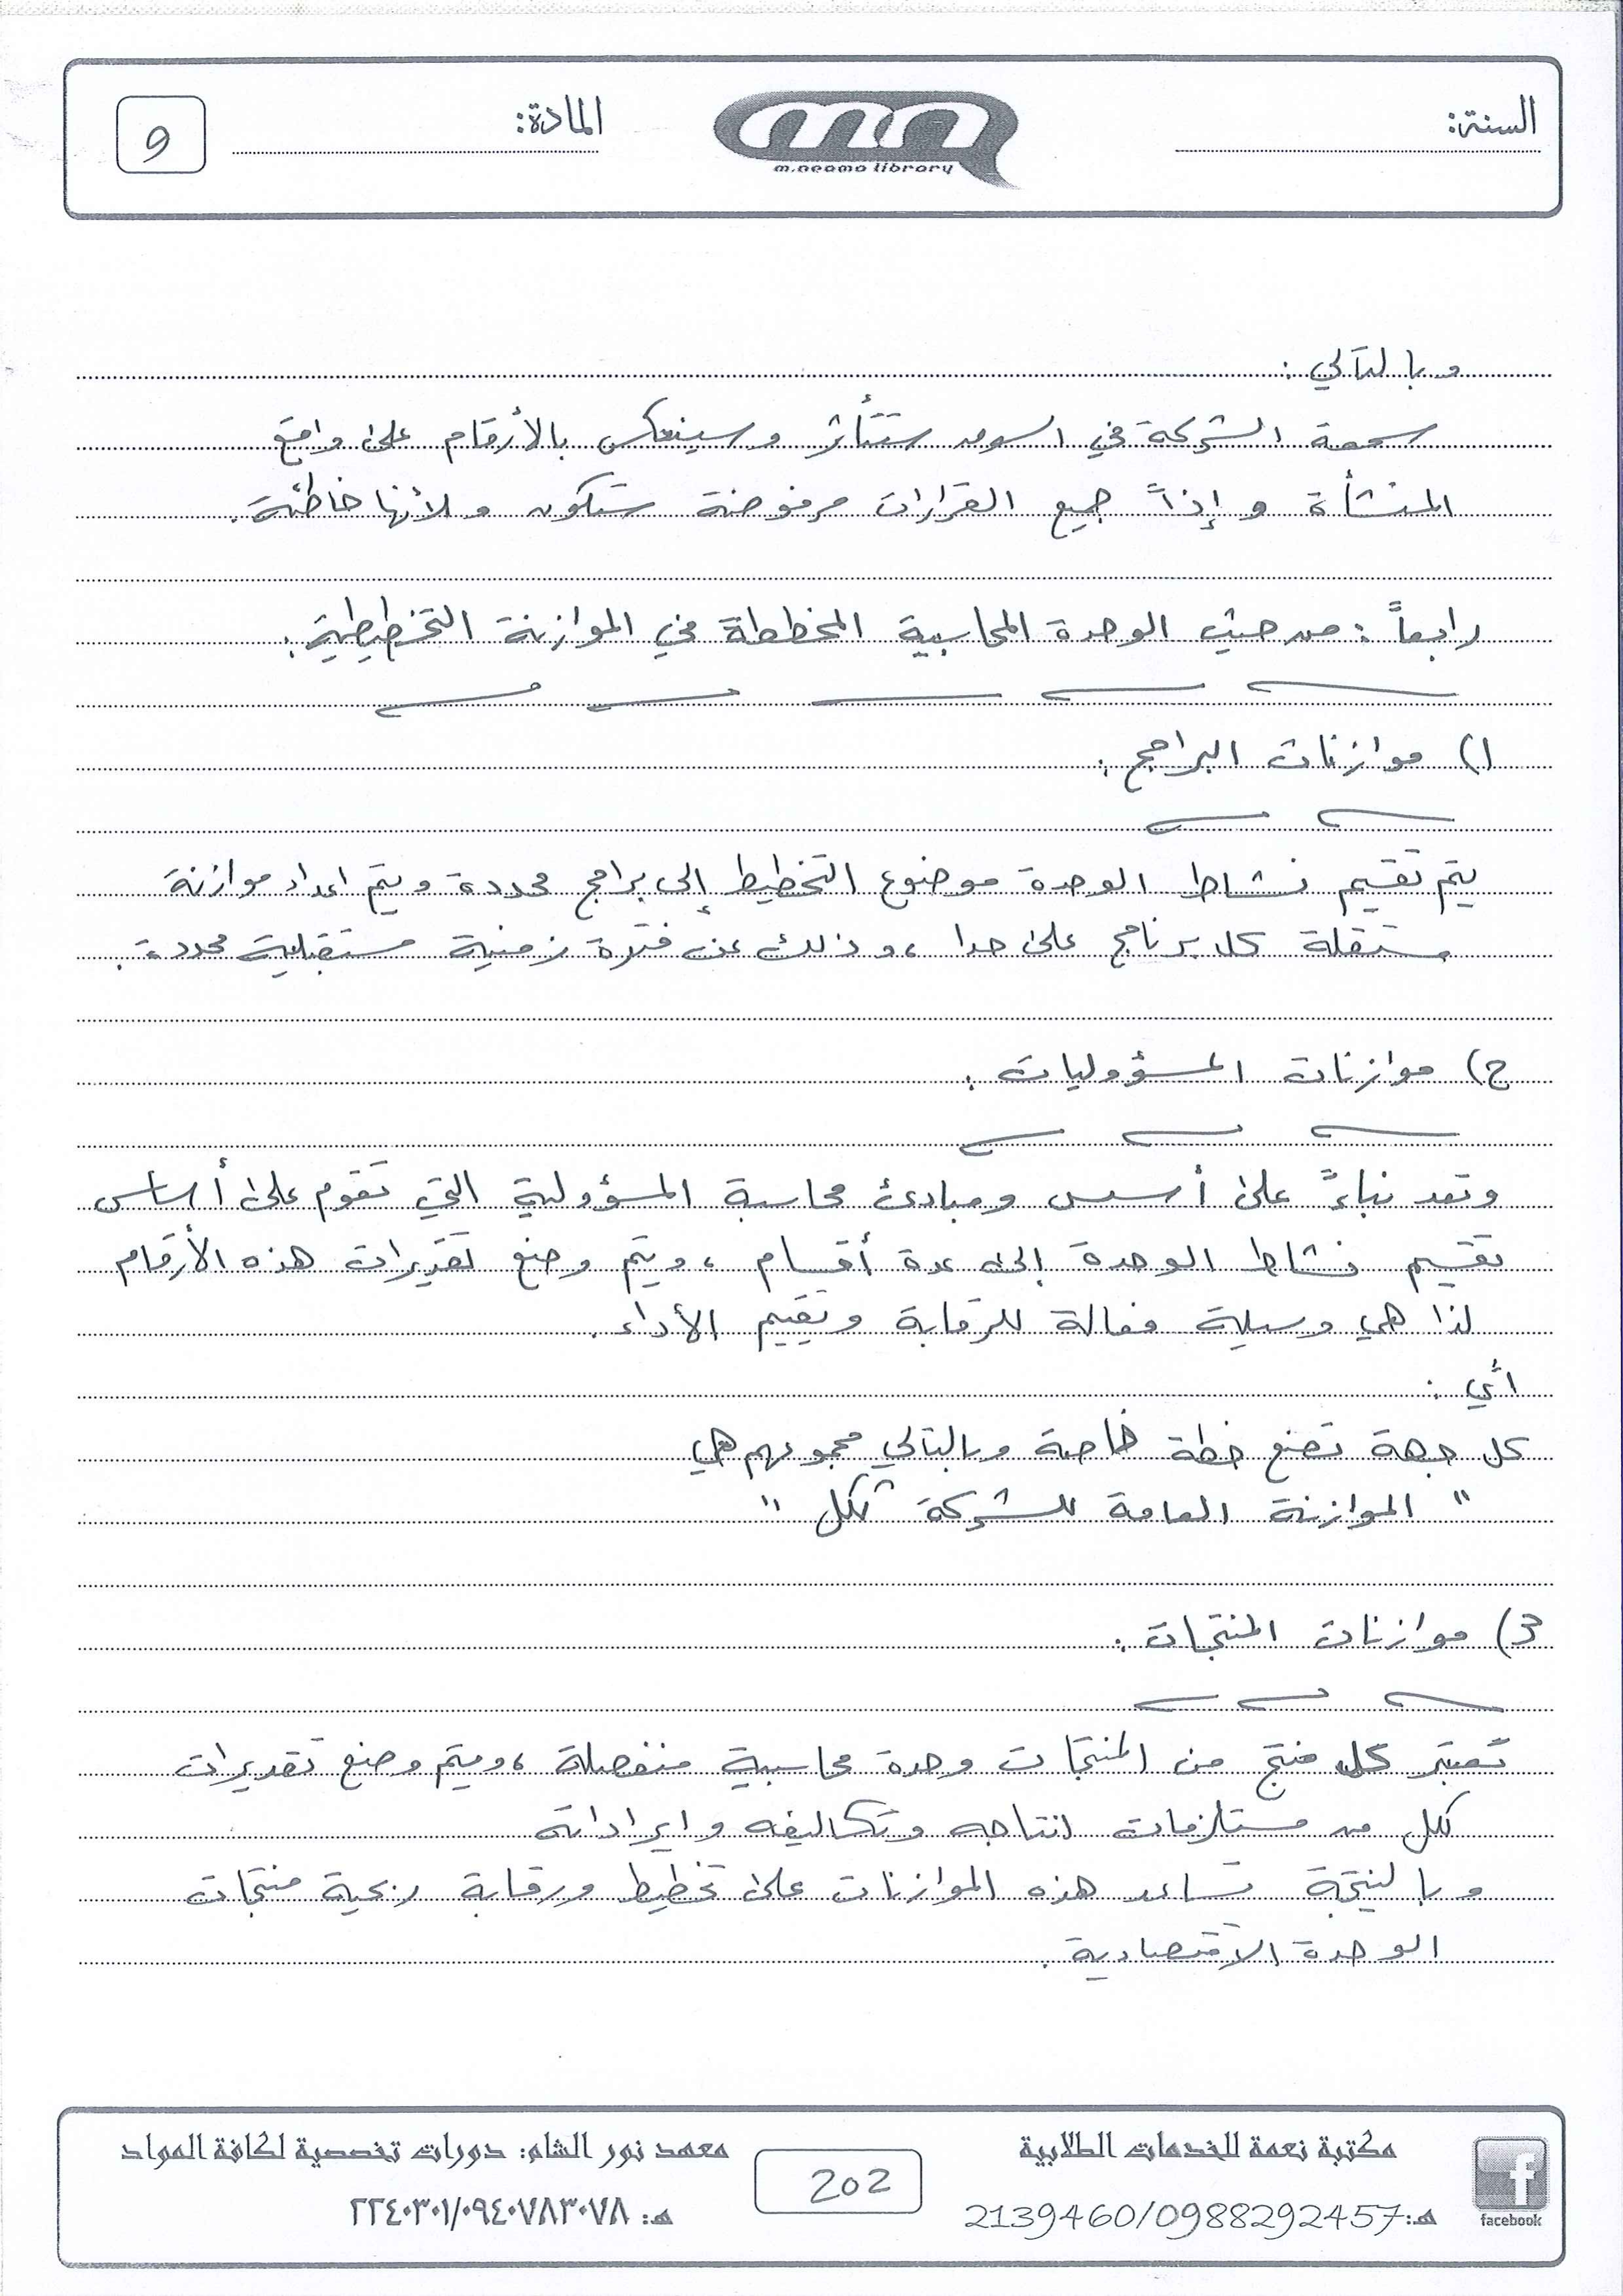 السنة:
m.neama library
المادة:
9
وبالتالي :
سمعة الشركة في السوق ستتأثر وسينعكس بالأرقام على واقع
المنشأة و إذاً جميع القرارات مرفوضة ستكون ولأنها خاطئة.
رابعاً : من حيث الوحدة المحاسبية المخططة في الموازنة التخطيطية :
1) موازنات البرامج :
يتم تقسيم نشاط الوحدة موضوع التخطيط إلى برامج محددة ويتم اعداد موازنة
مستقلة كل برنامج على حدا ، وذلك عن فترة زمنية مستقبلية محددة .
2) موازنات المسؤوليات :
وتعد بناءً على أسس ومبادئ محاسبة المسؤولية التي تقوم على أساس
تقسيم نشاط الوحدة إلى عدة أقسام ، ويتم وضع تقديرات هذه الأرقام
لذا هي وسيلة فعالة للرقابة وتقييم الأداء .
أي :
كل جهة تضع خطة خاصة وبالتالي مجموعهم هي
" الموازنة العامة للشركة ككل "
3) موازنات المنتجات :
تعتبر كل منتج من المنتجات وحدة محاسبية منفصلة ، ويتم وضع تقديرات
لكل من مستلزمات انتاجه وتكاليفه وايراداته
وبالنتيجة تساعد هذه الموازنات على تخطيط ورقابة ربحية منتجات
الوحدة الاقتصادية .
facebook
مكتبة نعمة للخدمات الطلابية
هـ:2139460/0988292457
202
معهد نور الشام: دورات تخصصية لكافة المواد
هـ: ٢٢٤٠٣٠١/٠٩٤٠٧٨٣٠٧٨